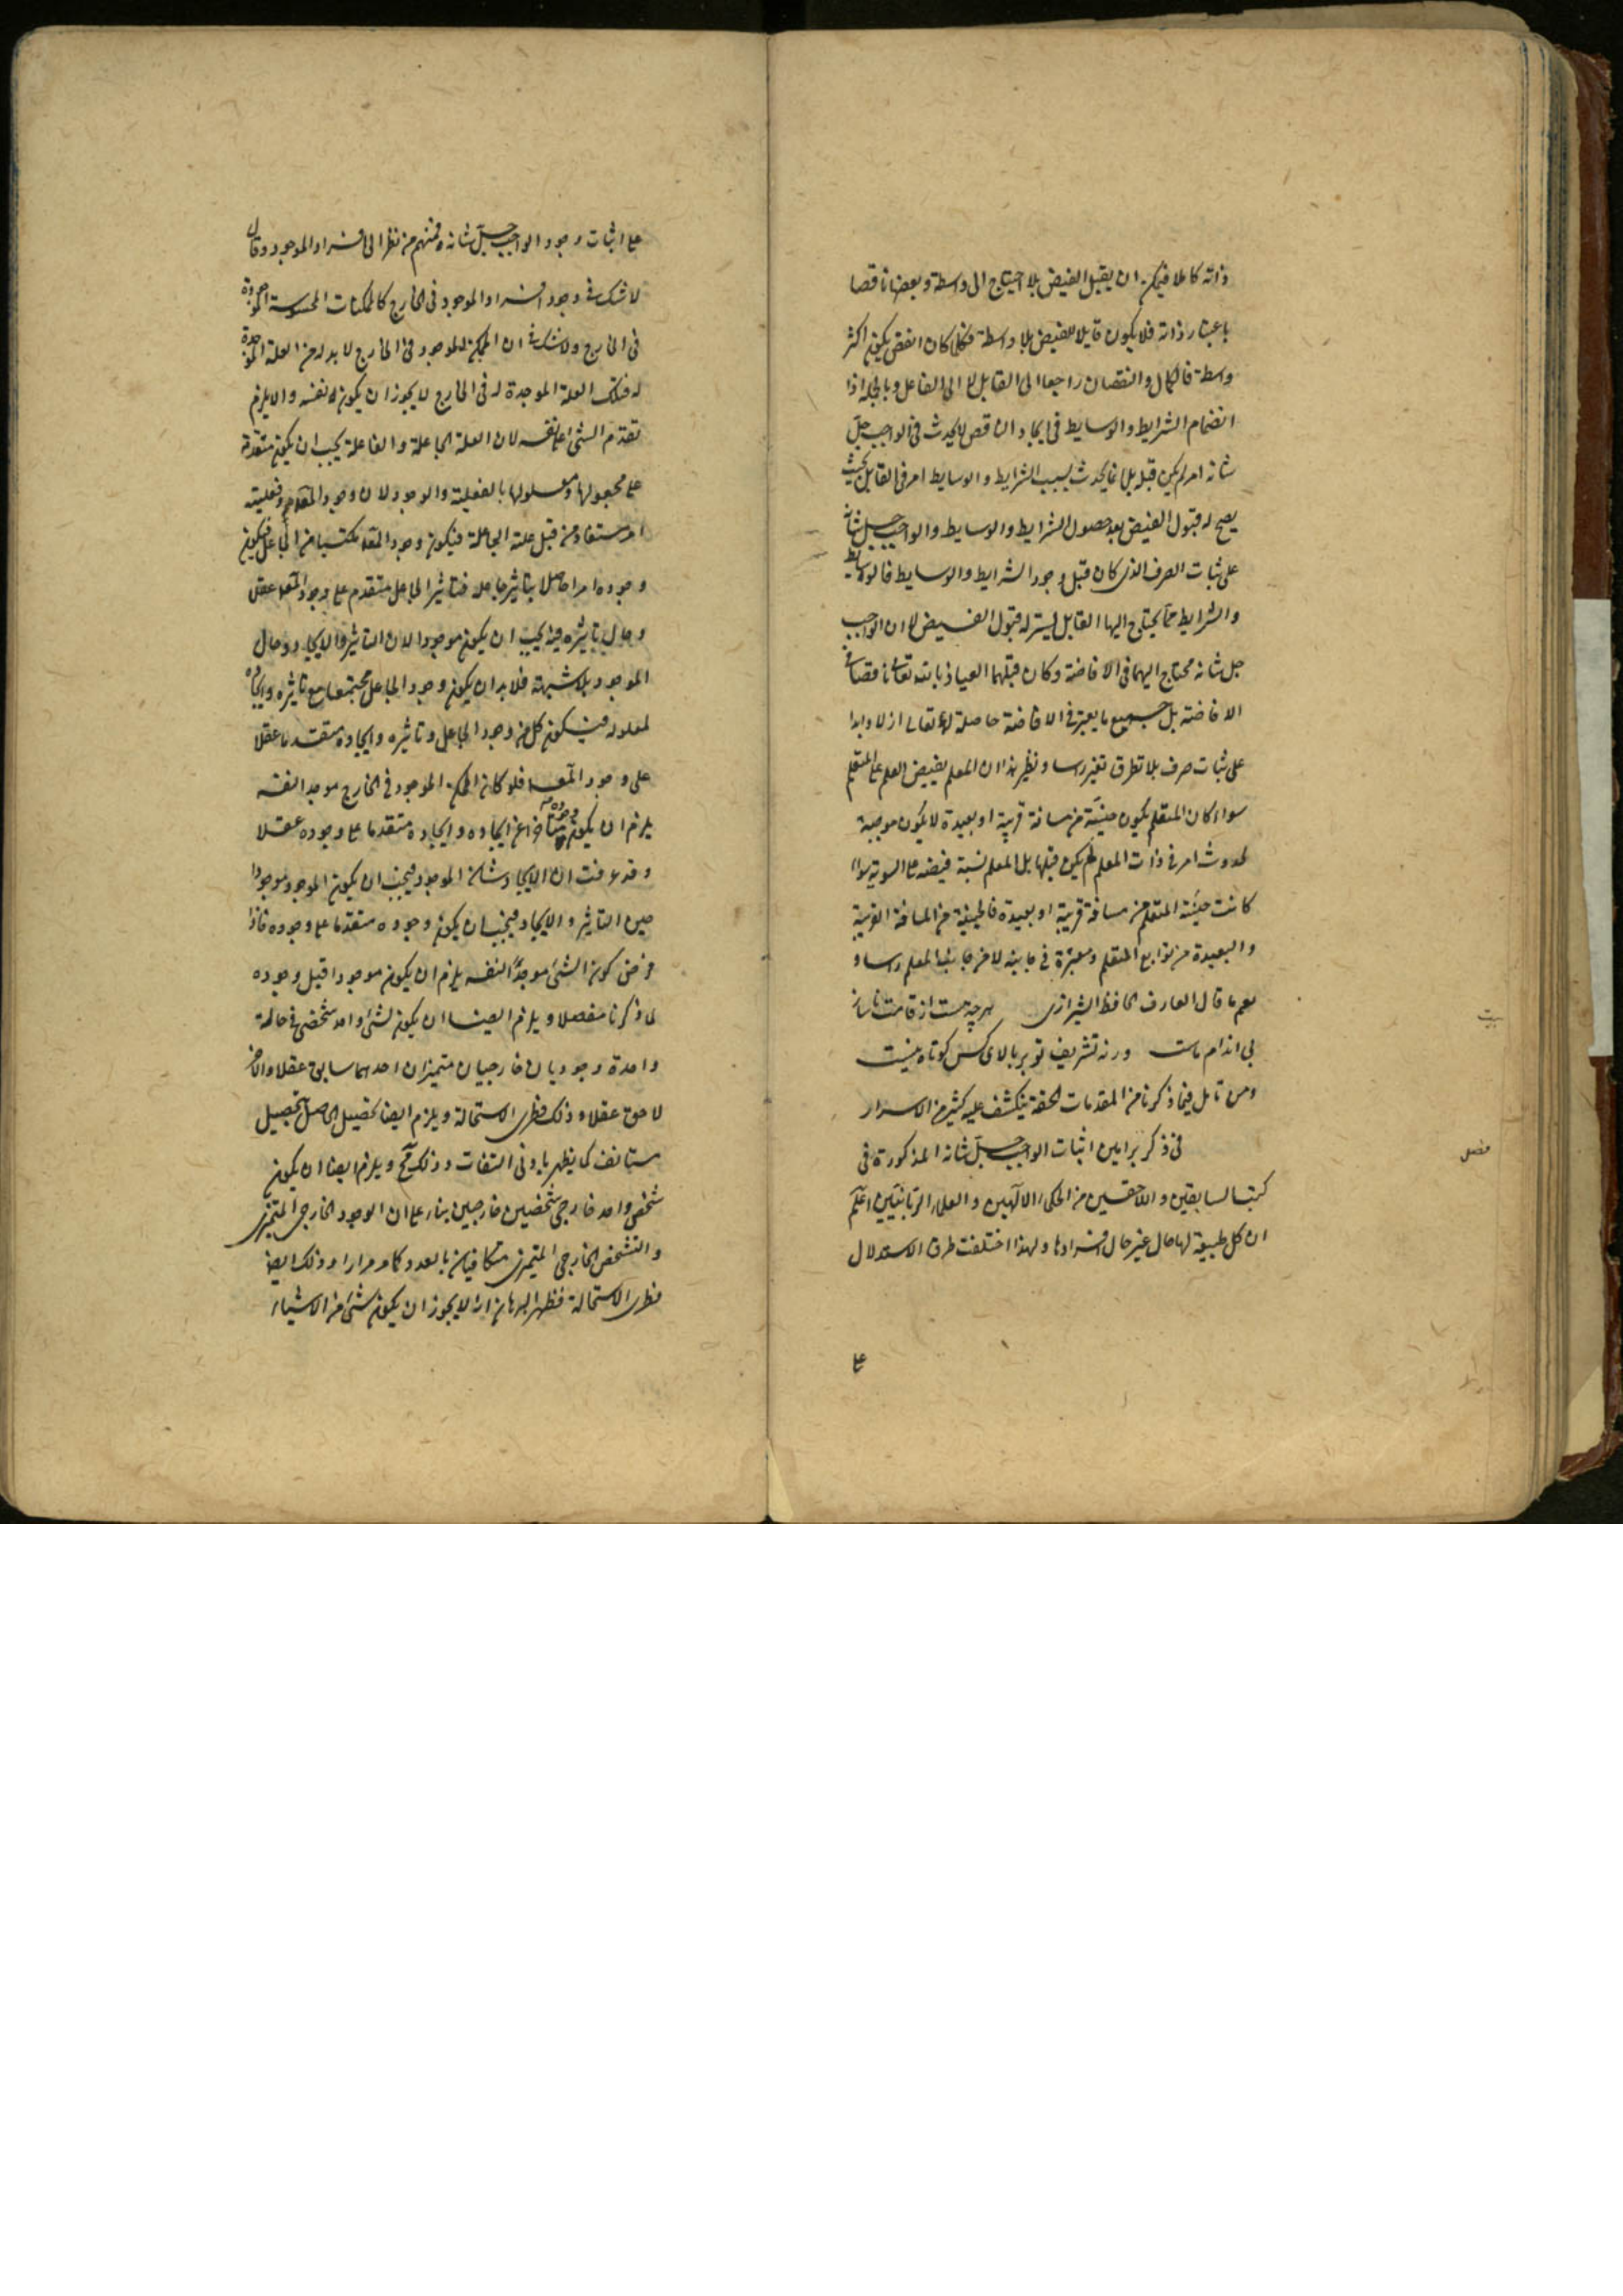 ذاته كاملا فيمكن ان يقبل الفيض بلا احتياج الى واسطة وبعضها ناقصا
باعتبار ذاته فلا يكون قابلا للفيض بلا واسطة فكلما كان انقص يكون اكثر
واسطة فالكمال والنقصان راجعا الى القابل لا الى الفاعل وبالجملة اذا
انضمام الشرايط والوسايط فى ايجاد الناقص لا يحدث فى الواجب جل
شانه امر لم يكن قبله بل انما يحدث بسبب الشرايط والوسايط امر فى القابل بحيث
يصح له قبول الفيض بعد حصول الشرايط والوسايط والواجب جل شانه
على ثبات الصرف الذى كان قبل وجود الشرايط والوسايط فالوسايط
والشرايط مما يحتاج اليها القابل ليتيسر له قبول الفيض لا ان الواجب
جل شانه محتاج اليهما فى الافاضة وكان قبلهما العياذ بالله تعالى ناقصا فى
الافاضة بل جميع ما يعتبر فى الافاضة حاصلة له تعالى ازلا وابدا
على ثبات صرف بلا تطرق تغير راسا ونظير هذا ان المعلم يفيض العلم على المتعلم
سواء كان المتعلم يكون حينئذ من مسافة قريبة او بعيدة لا يكون موجبة
لحدوث امر فى ذات المعلم لم يكن قبلها بل المعلم نسبة فيضه على السوية سواء
كانت حيثية المتعلم من مسافة قريبة او بعيدة فالحيثية من المسافة القريبة
والبعيدة من توابع المتعلم ومعتبرة فى جانبه لا من جانب المعلم راسا و
نعم ما قال العارف الحافظ الشيرازى هرچه هست از قامت ناساز
بيت
بى اندام ماست ورنه تشريف تو بر بالاى كس كوتاه نيست
ومن تامل فيما ذكرنا من المقدمات الحقة ينكشف عليه كثير من الاسرار
فصل
فى ذكر براهين اثبات الواجب جل شانه المذكورة فى
كتب السابقين واللاحقين من الحكماء الالهيين والعلماء الربانيين اعلم
ان كل طبيعة لها حال غير حال افرادها ولهذا اختلفت طرق الاستدلال
على
على اثبات وجود الواجب جل شانه فمنهم من نظر الى افراد الموجود وقال
لا شك فى وجود افراد الموجود فى الخارج كالممكنات المحسوسة الموجودة
فى الخارج ولا شك فى ان الممكن الموجود فى الخارج لا بد له من العلة الموجدة
له فتلك العلة الموجدة له فى الخارج لا يجوز ان يكون نفسه والا يلزم
تقدم الشئ على نفسه لان العلة الجاعلة والفاعلة يجب ان يكون متقدمة
على مجعولها ومعلولها بالفعلية والوجود لان وجود المعلول وفعليته
امر مستفاد من قبل علته الجاعلة فيكون وجود المعلول مكتسبا من الجاعل فيكون
وجوده امرا حاصلا بتاثير جاعله فتاثير الجاعل متقدم على وجود المعلول عقلا
وحال تاثيره فيه يجب ان يكون موجودا لان التاثير والايجاد حال
الموجود بلا شبهة فلا بد ان يكون وجود الجاعل مجتمعا مع تاثيره وايجاده
لمعلوله فيكون كل من وجود الجاعل وتاثيره وايجاده متقدما عقلا
على وجود المعلول فلو كان الممكن الموجود فى الخارج موجدا لنفسه
يلزم ان يكون وجوده متاخرا عن ايجاده وايجاده متقدما على وجوده عقلا
وقد عرفت ان الايجاد شان الموجود فيجب ان يكون الموجد موجودا
حين التاثير والايجاد فيجب ان يكون وجوده متقدما على وجوده فاذا
فرض كون الشئ موجدا لنفسه يلزم ان يكون موجودا قبل وجوده
لما ذكرنا مفصلا ويلزم ايضا ان يكون لشئ واحد شخصى فى حالة
واحدة وجوديان خارجيان متميزان احدهما سابق عقلا والاخر
لاحق عقلا وذلك فطرى الاستحالة ويلزم ايضا تحصيل الحاصل بتحصيل
مستانف كما يظهر بادنى التفات وذلك مح ويلزم ايضا ان يكون
شخص واحد خارجى شخصين خارجيين بناء على ان الوجود الخارجى المتميزى
والتشخص الخارجى المتميزى متكافيان بالعدد كما مر مرارا وذلك ايضا
فطرى الاستحالة فظهر البرهان انه لا يجوز ان يكون شئ من الاشياء